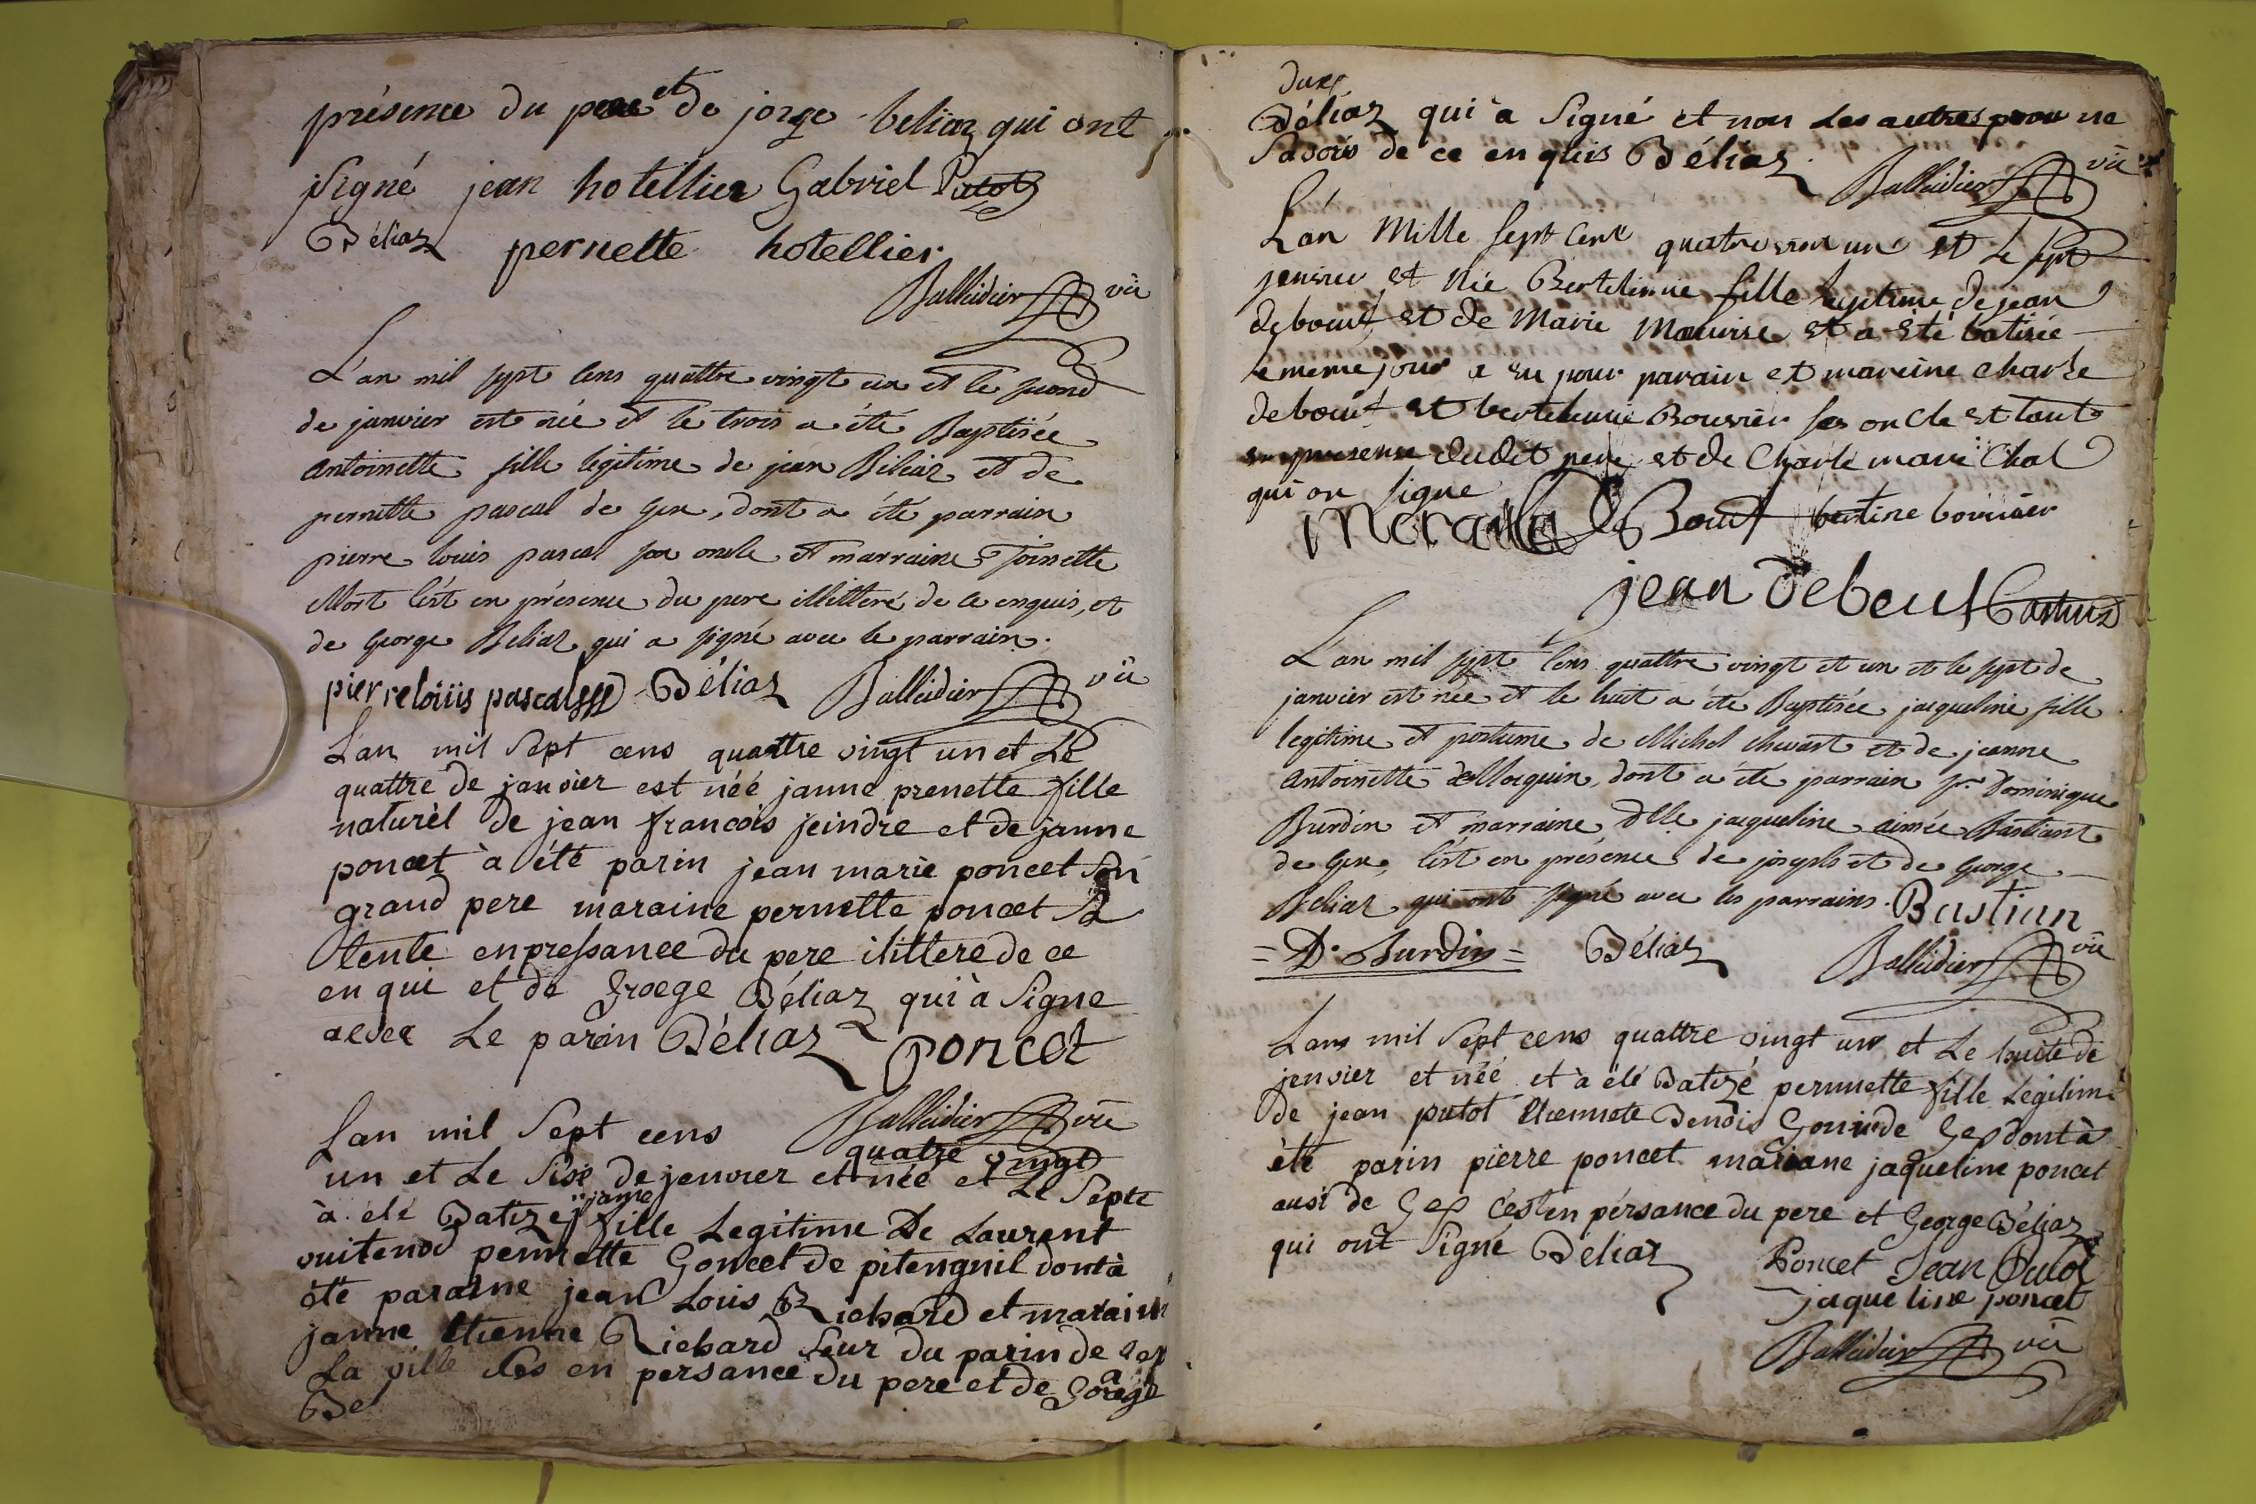 présence du pere et de jorge beliaz qui ont
signé jean hotellier Gabriel Putod
Béliaz pernette hotellier
Balleidier vic
L'an mil sept cens quattre vingt un et le second
de janvier est née et le trois a été Baptisée
antoinette fille legitime de jean Béliaz et de
pernette pascal de Gex, dont a été parrain
pierre louis pascal son oncle et marraine Toinette
Mort c'est en présence du pere illitteré de ce enquis, et
de george Béliaz qui a signé avec le parrain.
pierre loüis pascal Béliaz Balleidier vic
L'an mil Sept cens quattre vingt un et Le
quattre de janvier est néé janne prenette fille
naturél de jean francois jeindre et de janne
poncet à été parin jean marie poncet Son
grand pere maraine pernette poncet Sa
tente enpressance du pere ilittere de ce
en qui et de Groege Béliaz qui à Signe
avec Le parin Béliaz Poncet
Balleidier vic
Lan mil Sept cens quatre vingt
un et Le Sise de jenvier et néé et Le Septe
à été Batizé janne fille Legitime De Laurent
vuitenod pernette Goncet de pitengnil dont à
été paraine jean Louis Richard et maraine
janne Etienne Richard Seur du parin de Gex
La ville Ses en persance du pere et de Goaege
Be
Dure
Béliaz qui à Signé et non Les autres pour ne
Savoir de ce en quis Béliaz
Balleidier vic
L'an Mille sept cent quatre vint un et Le sept
jenvier et née Bertelimie fille legitime de jean
deboeuf et de Marie Maurise et a été batisée
le meme jour a eu pour parain et mareine charle
deboeuf et bertelemie Bouvier ses oncle et tante
en presense dudit pere et de Charle mari Chal
qui on signe
De Boeuf bertine bouvier
jean deboeuf Castus
L'an mil sept cens quattre vingt et un et le sept de
janvier est née et le huit a été Baptisée jacqueline fille
legitime et postume de Michel chevart et de jeanne
antoinette deMocquin, dont a été parrain sr. Dominique
Burdin et marraine Dlle jacqueline aimée Bastiant
de Gex, c'est en présence de joseph et de George
Béliaz qui ont signé avec les parrains. Bastian
= D. Burdin = Béliaz
Balleidier vic
Lans mil Sept cens quattre vingt un et Le huite de
jenvier et néé et à été Batizé pernnette fille Legitime
de jean putot Etiennete Dendis Gonin de Gex dont à
été parin pierre poncet mariane jaqueline poncet
ausi de Gex c'est en pérsance du pere et George Béliaz
qui ont Signé Béliaz
Poncet Jean Putod
jaqueline poncet
Balleidier vic